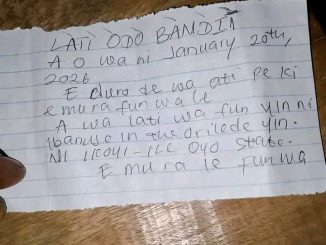 LATI ODO BANDIT
A O wa ni January 20th,
2026
E duro de wa ati pe ki
e mura fun wa le
A wa lati wa fun yin ni
ibanuje in the orilede yin.
NI IKOYI-ILE OYO State.
E mura le fun wa